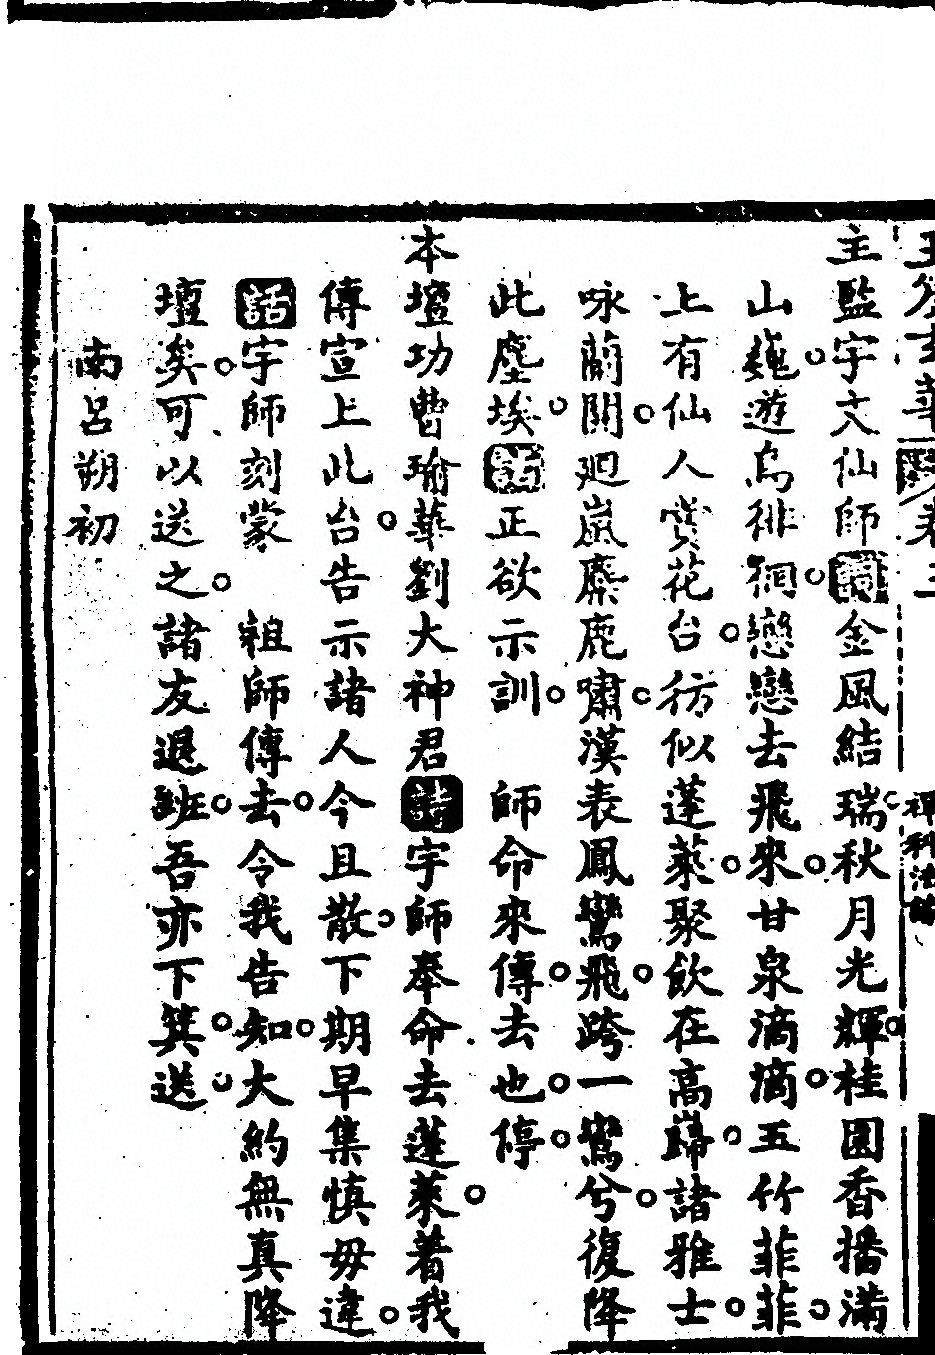 主監宇文仙師詞金風結瑞秋月光輝桂園香播滿
山巍遊烏徘徊戀戀去飛來甘泉滴滴五竹菲菲
上有仙人賞花台彷似蓬萊聚飲在高歸諸雅士
咏蘭開廻嵐麋鹿嘯漢表鳳鸞飛跨一鸞兮復降
此塵埃話正欲示訓 師命來傳去也停
本壇功曹瑜華劉大神君詩宇師奉命去蓬萊着我
傳宣上此台告示諸人今且散下期早集慎毋違
話宇師刻蒙 祖師傳去令我告知大約無真降
壇矣可以送之諸友退班吾亦下箕送
南呂朔初